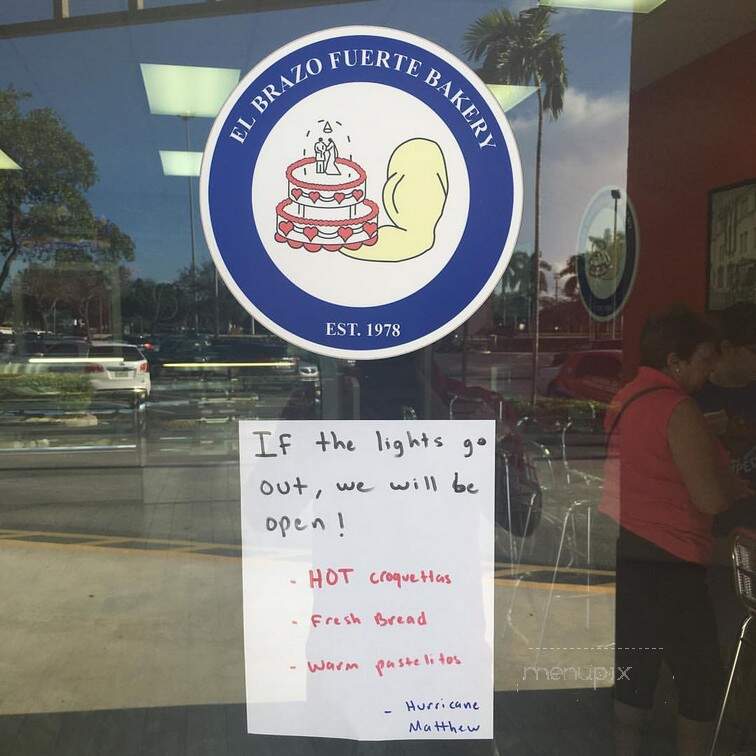 EL BRAZO FUERTE BAKERY
EST. 1978
If the lights go
out, we will be
open!
- HOT croquettas
- Fresh Bread
- Warm pastelitos
- Hurricane
Matthew
menupix